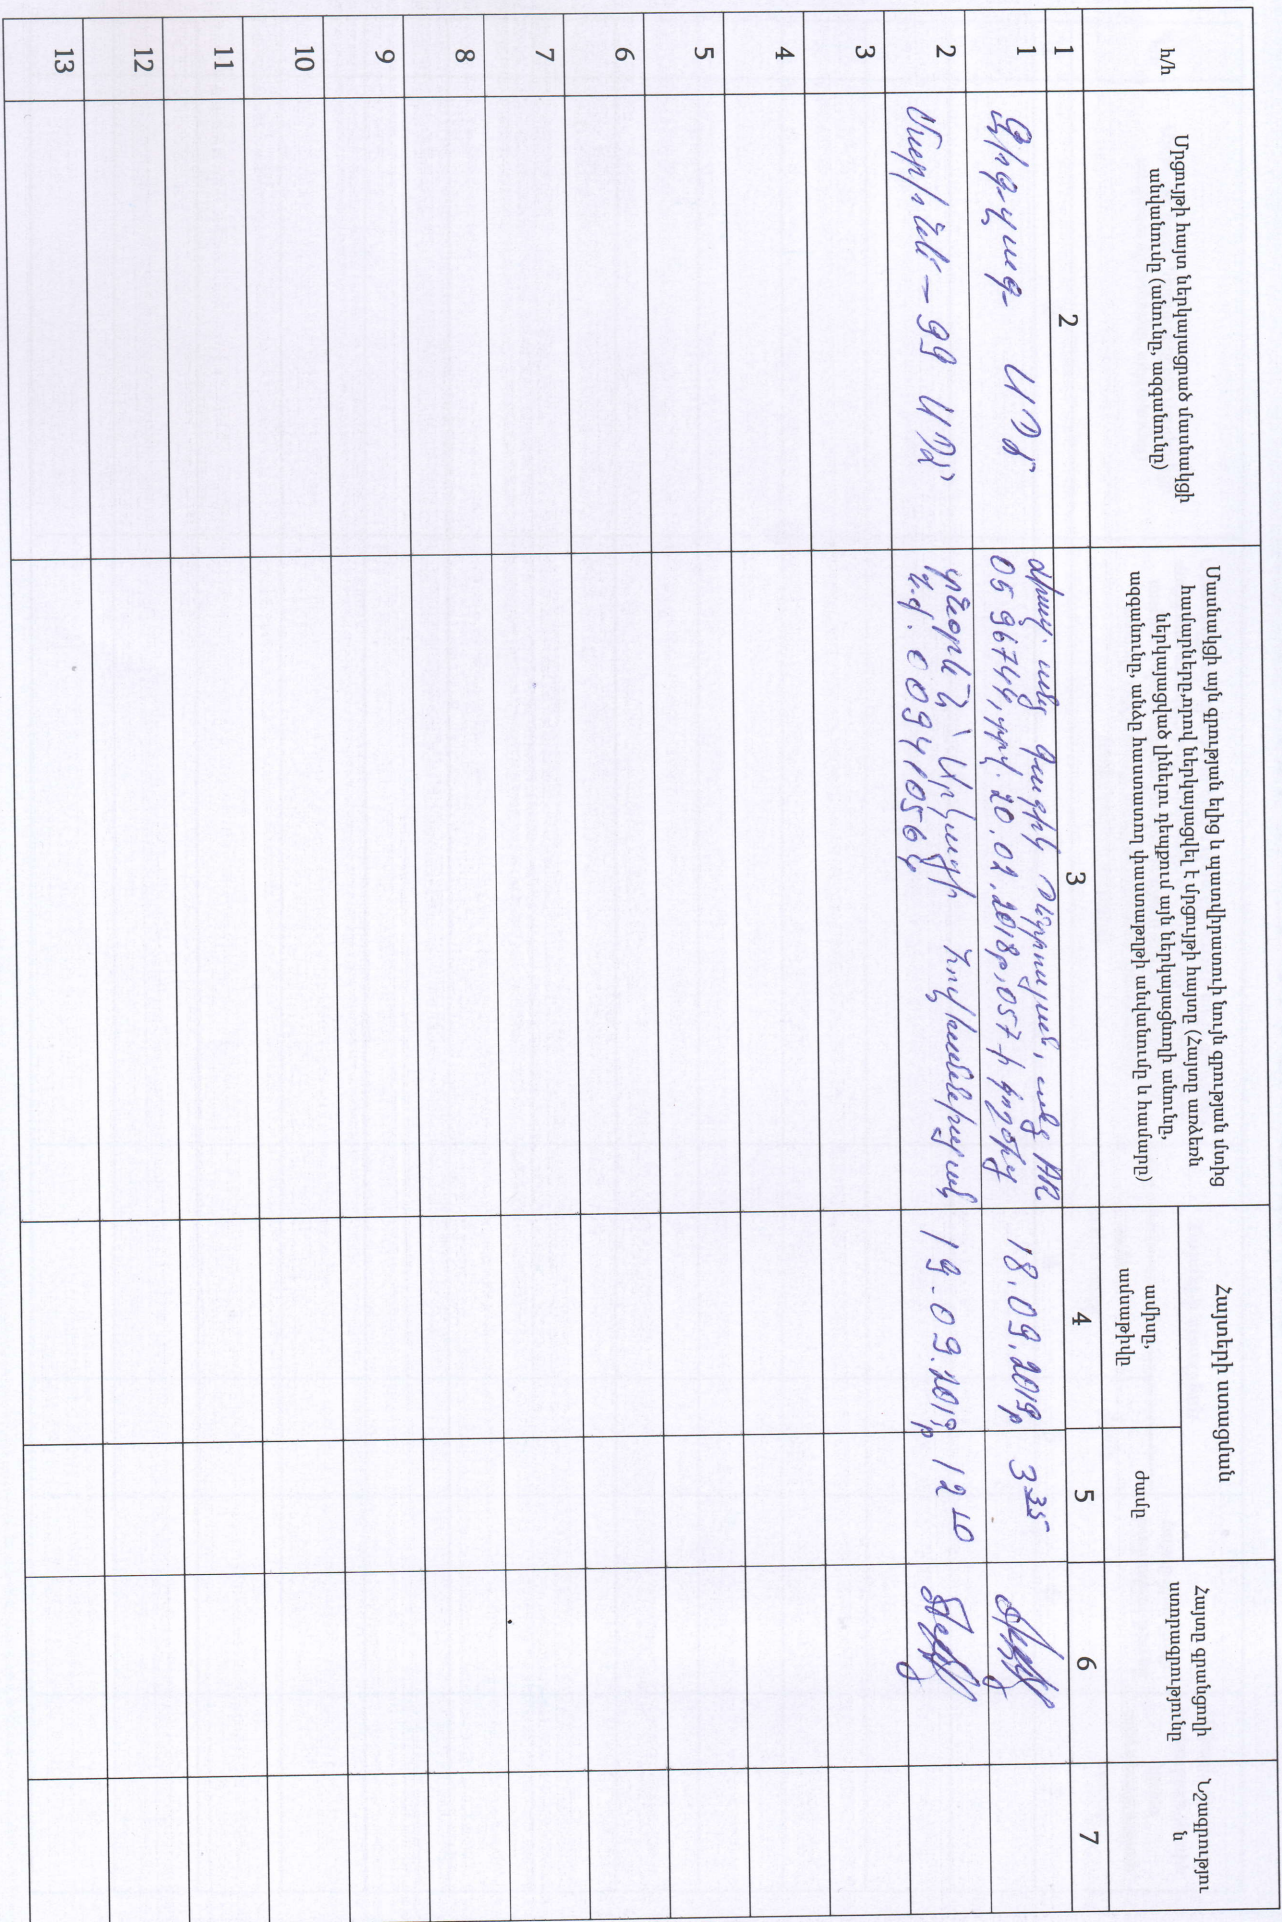 հ/հ
Մրցույթի հայտ ներկայացրած մասնակցի
անվանումը (անունը, ազգանունը)
Մասնակցի այն գրության ելից և պատվիրատուի նույն գրության մտից
համարները,որով ներկացվել է մրցույթի հայտը (Հայտը առձեռն
ներկայացված լինելու դեպքում այն ներկայացնողի անունը,
ազգանունը, անձը հաստատող փաստաթղթի անվանումը և համարը)
Հայտերի ստացման
ամիսը,
ամսաթիվը
ժամը
Հայտը գրանցողի
ստորագրությունը
Նշագրությու
ն
1
2
3
4
5
6
7
1
ՍՊԸ
լիազ. անձ Գագիկ Պետրոսյան, անձ AR
0596744, տրվ. 20.02.2018թ, 057-ի կողմից
18.09.2019թ
3 35
2
Մարինե-99 ՍՊԸ
տնօրեն՝ Արկադի Հովհաննիսյան
ն.ք. 009410564
19.09.2019թ
12 10
3
4
5
6
7
8
9
10
11
12
13